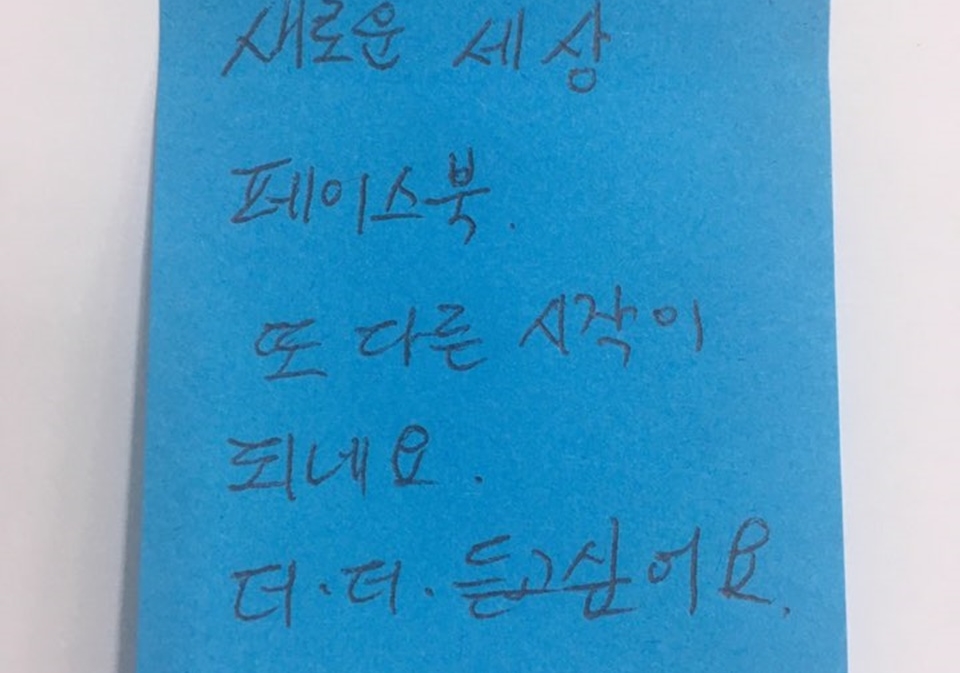 새로운 세상
페이스북.
또 다른 시작이
되네요.
더·더·듣고싶어요.